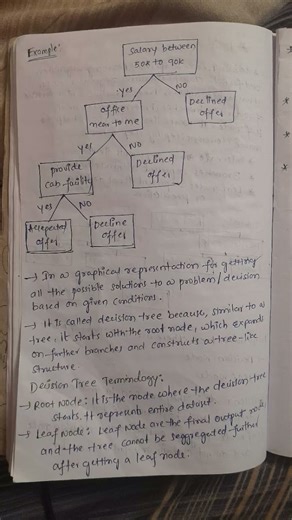 Example:
Salary between
50K to 90K
Yes
NO
office
near to me
Declined
offer
Yes
NO
Provide
Cab facility
Declined
offer
Yes
NO
Accepted
offer
Decline
offer
→ In a graphical representation for getting
all the possible solutions to a problem/decision
based on given conditions.
→ It is called decision tree because, similar to a
tree, it starts with the root node, which expands
on further branches and constructs a tree-like
structure
Decision Tree Terminology:
→ Root Node: It is the node where the decision tree
starts. It represents entire dataset.
→ Leaf Node: Leaf Node are the final output node
and the tree cannot be seggregated further
after getting a leaf node.